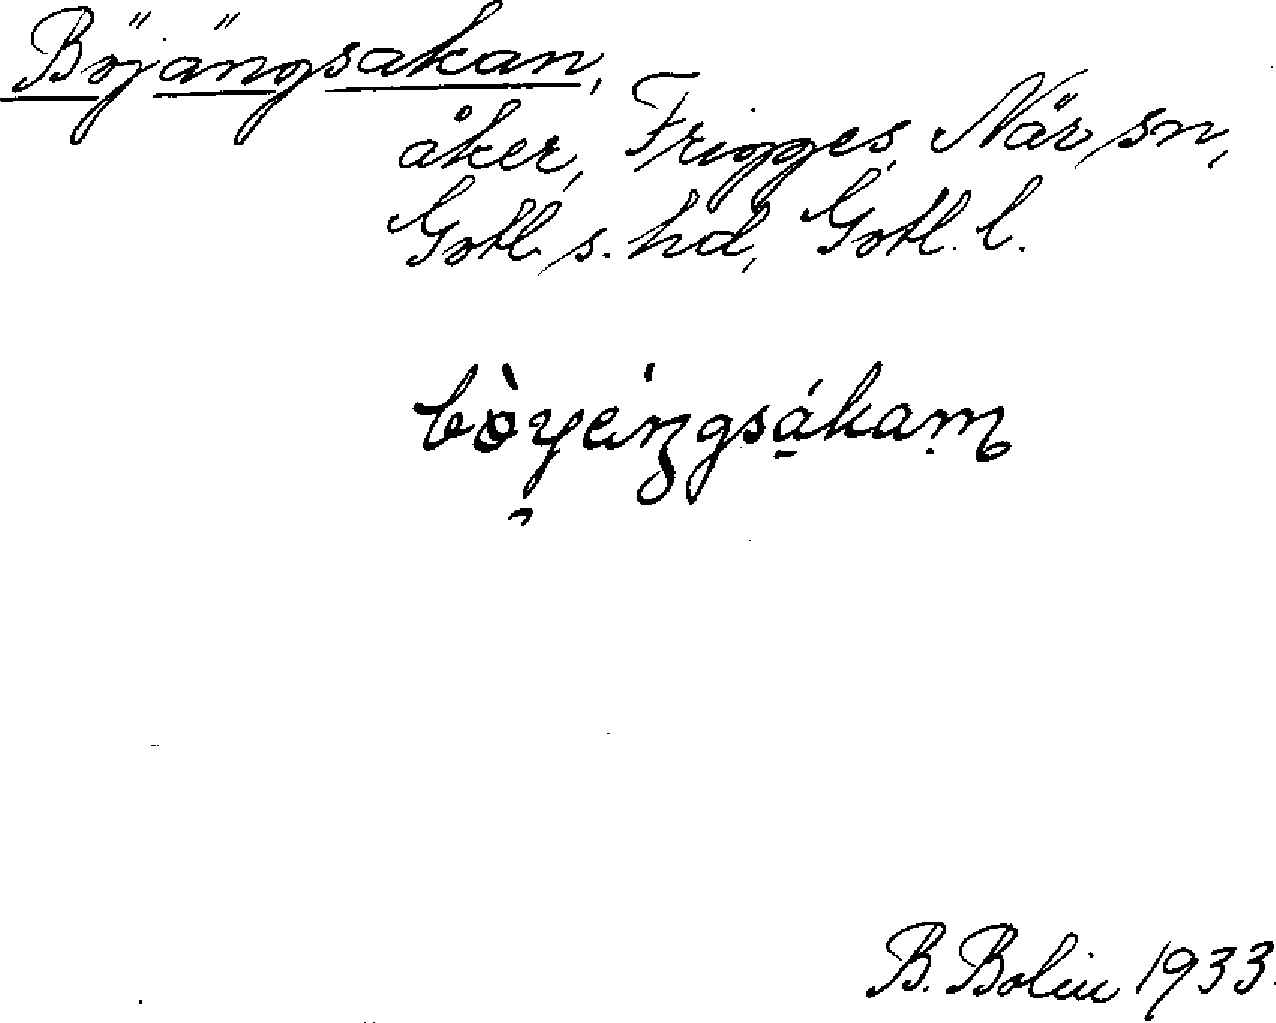 Böjängsakan,
åker, Frigges, När sn,
Gotl. s. hd, Gotl. l.
B. Bolin 1933.